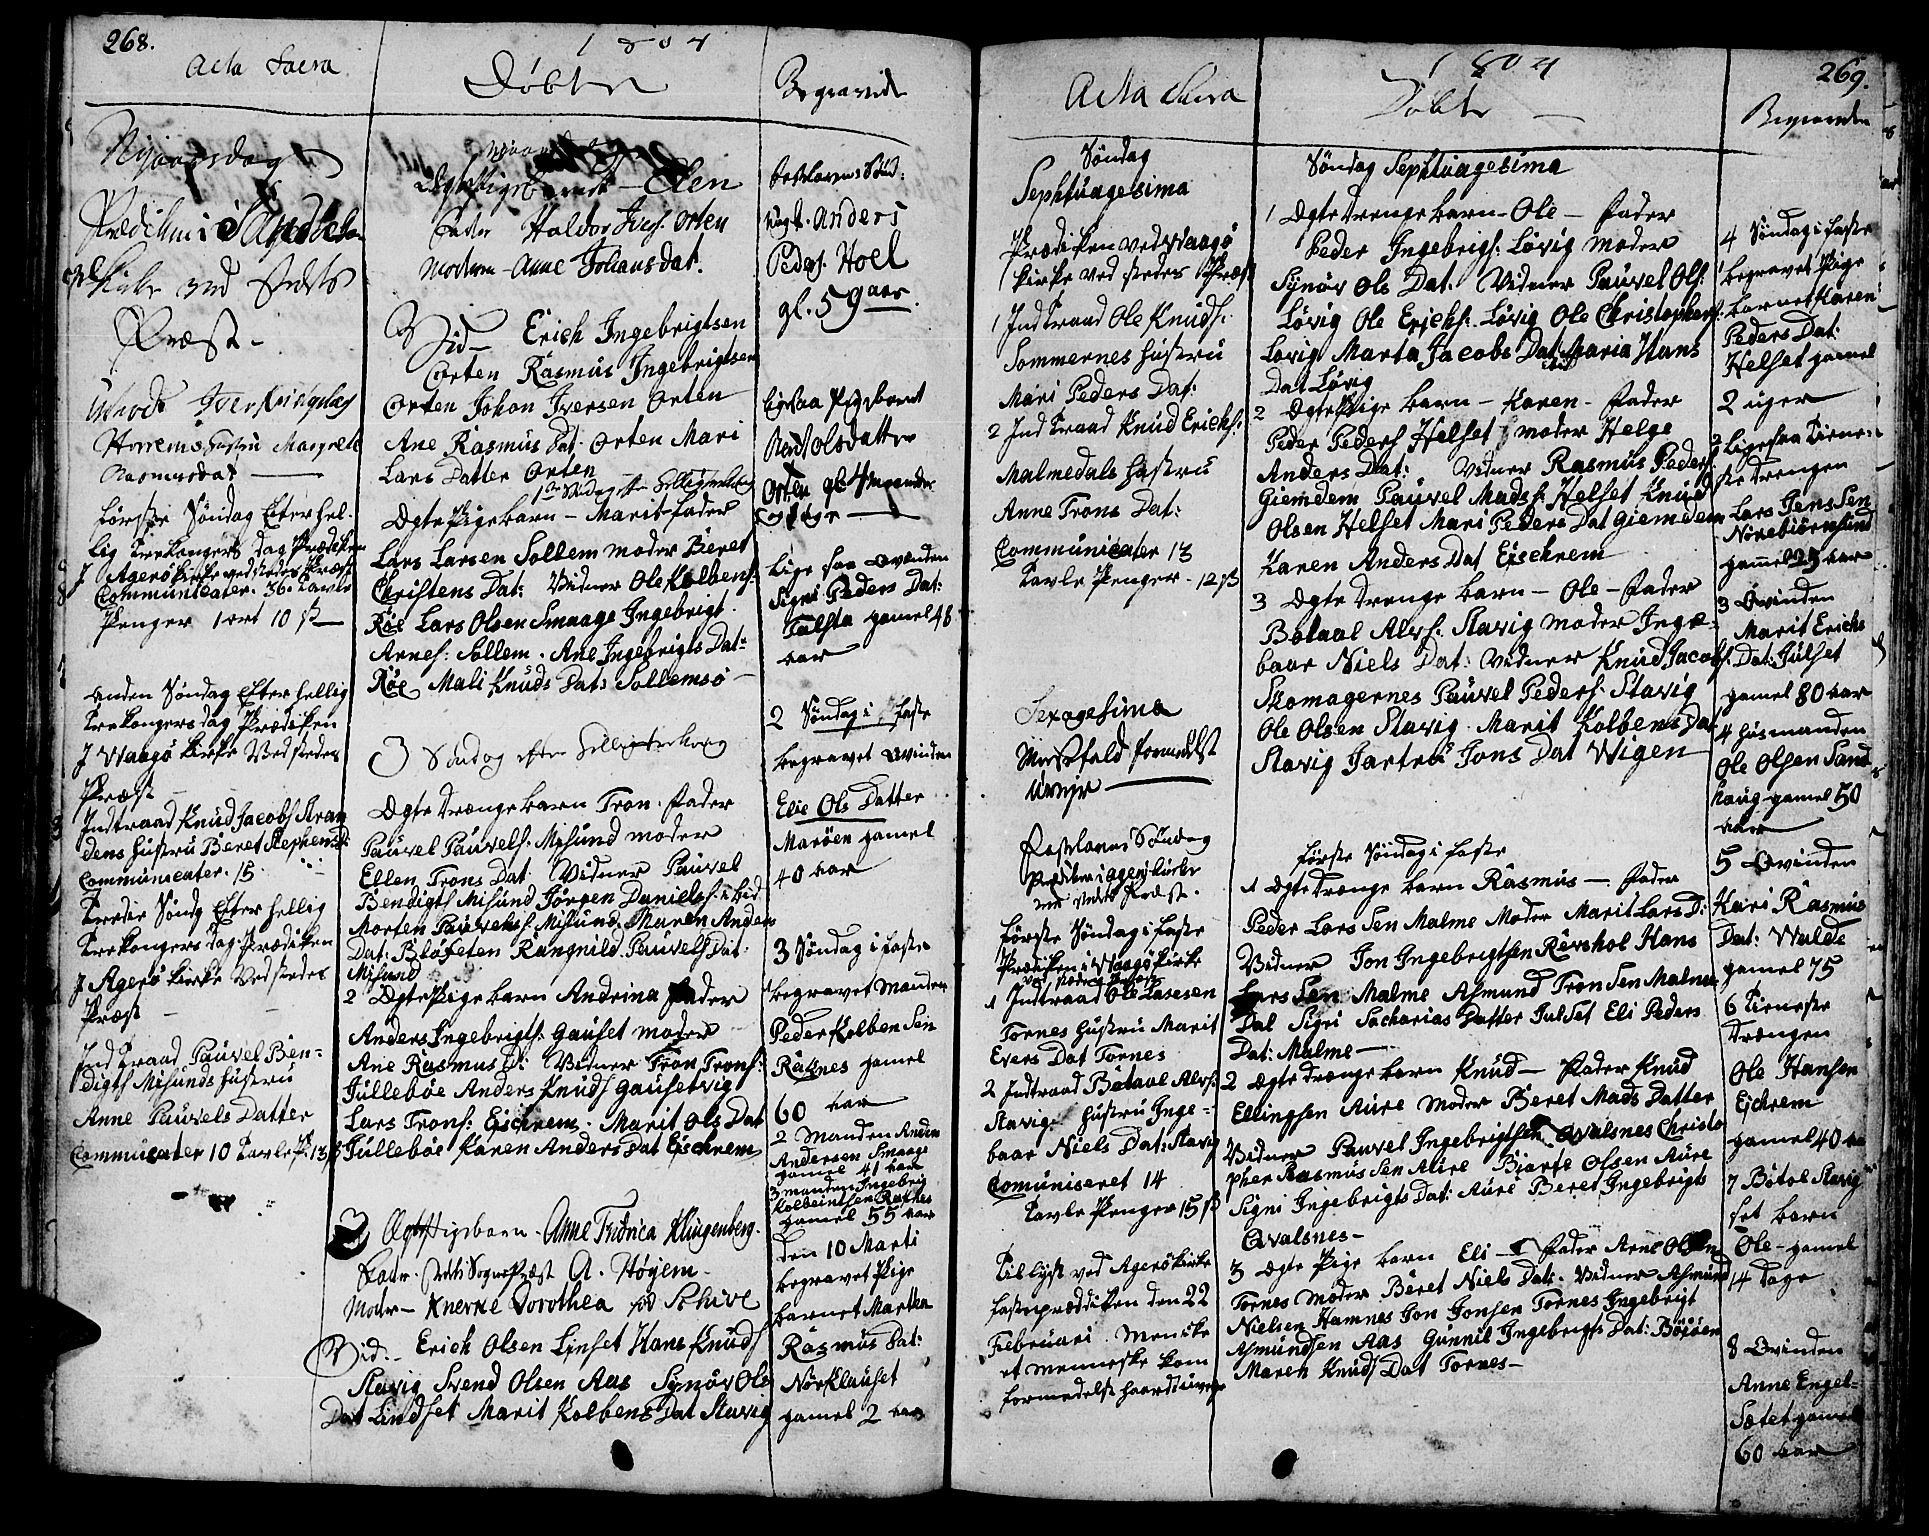 268.
Acta Sacra
1804
Døbte
Begravede
Nyaarsdag
Prædiken i
Kirke ved Stedets
Præst
Horrems Hustru Margrete
Rasmusdat
første Søndag Efter hel-
lig trekongers dag Prædiken
J Agerø Kirke ved stedes Præst
Communicater. 36. Tavle
Penger 1 ort 10 β
anden Søndag Efter hellig
trekongers dag Prædiken
J Waagø Kirke Ved stedes
Præst
Indtraad Knud Jacobs Stran
dens Hustru Beret Stephens D:
Communicater. 15
Tredie Søndg Efter hellig
trekongers dag Prædiken
J Agerø Kirke Ved stedes
Præst
Indtraad Pauvel Ben-
digts Misunds Hustru
Anne Pauvels Datter
Commucater 10 Tavle P: 13 β
Ægte Pigebarn - Elen
Fader Haldor Iverss. Orten
Modern - Anne Johansdat.
Vid - Erich Ingebrigtsen
Orten Rasmus Ingebrigtsen
Orten Johan Iversen Orten
Ane Rasmus Dat: Orten Mari
Lars Datter Orten
Ægte Pigebarn - Marit fader
Lars Larsen Sollem moder Beret
Christens Dat: Vidner Ole Kolbens:
Røe Lars Olsen Smaage Ingebrigt
Arnes: Sollem. Ane Ingebrigts Dat:
Røe Mali Knuds Dat: Sollemsø
3 Søndag efter Hellig trekong
Ægte drængebarn Tron. fader
Pauvel Pauvels: Misund moder
Ellen Trons Dat Vidner Pauvel
Bendigts Misund Jørgen Daniels: ibid
Morten Pauvels: Misund Maren Anders
Dat: Bløketen Rangnild Pauvels Dat:
Misund
2 Ægte Pige barn Andrina Fader
Anders Ingebrigts: Gauset moder
Ane Rasmus D: Vidner Tron Trons:
Jullebøe Anders Knuds Gausetvig
Lars Trons: Eischrem. Marit Ols Dat
Jullebøe Karen Anders Dat Eischrem
3 Ægte Pigebarn. Anne Tronica Klingenberg.
Fader. Stedets Sognepræst A. Høyem.
Moder - Knerke Dorothea fød Schive
Vid. - Erich Olsen Linset Hans Knuds
Stavig Svend Olsen Aas Synøv Ole
Dat Lindset Marit Kolbens Dat Stavig
Anders
Peders. Hoel
gl. 59 aar.
Ligesaa Pigebarnet
Olsdatter
Orten gl. 4 maaneder
Lige saa Qvinden
Signi Peders Dat:
Talsta gamel 48
aar
2 Søndag i faste
begravet Qvinden
Elie Ols Datter
Marøen gamel
40 aar
3 Søndag i faste
begravet manden
Peder Kolben Sen
Raknes gamel
60 aar
2 Manden Anders
Andersen Smaage
gamel 41 aar
3 manden Ingebrig
Kolbeinsen Raknes
gamel 55 aar
den 10 Marti
begravet Pige
barnet Martha
Rasmus Dat:
Nørklauset
gamel 2 aar
Acta Sacra
1804
269.
Døbte
Begravede
Søndag
Sephtuagesima
Prædiken ved Waagø
Kirke ved stedes Præst
1 Indtraad Ole Knuds:
Sommernes Hustru
Mari Peders Dat:
2 Indtraad Knud Erichs:
Malmedals Hustru
Anne Trons Dat:
Communicater 13
Tavle Penger. 12 β
Sexagesima
Messefald formedelst
Uveyr
Fastelavns Søndag
Prædiken i Agerø Kirke
ved Stedets Præst.
første Søndag i faste
Prædiken i Waagø Kirke
1 Indtraad Ole Lasesen
Tornes Hustru Marit
Evers Dat Tornes
2 Indtraad Botaal Alvs:
Stavig: Hustru Inge-
baar Niels Dat: Stavig
Comuniseret 14
Tavle Penger 15 β
Tillyst ved Agerø Kirke
fasteprædiken den 22
Februari. men ike
et menneske kom
formedelst haardt uveyr
Søndag Sephtuagesima
1 Ægte drenge barn - Ole - fader
Peder Ingebrigs. Løvig moder
Synøv Ols Dat. Vidner Pauvel Ols:
Løvig Ole Erichs: Løvig Ole Christophers:
Løvig Marta Jacobs Dat ibid Maria Hans
Dat Løvig
2 Ægte Pige barn - Karen - fader
Peder Peders Helset moder Helge
Anders Dat: Vidner Rasmus Peders:
Giemdem Pauvel Mads: Helset Knud
Olsen Helset Mari Peders Dat Giemdem
Karen Anders Dat Eischrem
3 Ægte drenge barn - Ole - fader
Botaal Alvs: Stavig moder Inge-
baar Niels Dat: Vidner Knud Jacobs:
Skomagernes Pauvel Peders: Stavig
Ole Olsen Stavig. Marit Kolbens Dat
Stavig Jartru Jons Dat Wigen
første Søndag i faste
1 Ægte drænge barn Rasmus - fader
Peder Lars Sen Malme Moder Marit Lars D:
Vidner Jon Ingebrigtsen Røvshol Hans
Lars Sen Malme Asmund Tron Sen Malme
Dal Signi Sacharias Datter Julset Eli Peders
Dat: Malme
2 Ægte drænge barn Knud - Fader Knud
Ellingsen Aure Moder Beret Mads Datter
Vidner Pauvel Ingebrigtsen Qvalsnes Christo
pher Rasmus Sen Aure Bjarte Olsen Aure
Signi Ingebrigts Dat: Aure Beret Ingebrigts
Qvalsnes -
3 Ægte Pige barn Eli - Fader Arne Olsen
Tornes Moder Beret Niels Dat. Vidner Asmund
Nielsen Hamnes Jon Jonsen Tornes Ingebrigt
Asmundsen Aas Gunnil Ingebrigts Dat: Bøjøen
Maren Knuds Dat Tornes -
4 Søndag i faste
1 begravet Pige
barnet Karen
Peders Dat:
Helset gamel
2 uger
2 Ligesaa tiene-
ste drengen
Lars Jens Sen
Nørebiørnsund
gamel 25 aar
3 Qvinden
Marit Erichs
Dat: Julset
gamel 80 aar
4 Husmanden
Ole Olsen Sand
haug gamel 50
aar
5 Qvinden
Kari Rasmus
Dat: Walde
gamel 75
6 Tieneste
drængen
Ole Hansen
Ejchrem
gamel 40 aar
7 Botol Stavig
set barn
Ole - gamel
14 dage
8 Qvinden
Anne Engel-
Sætet gamel
60 aar